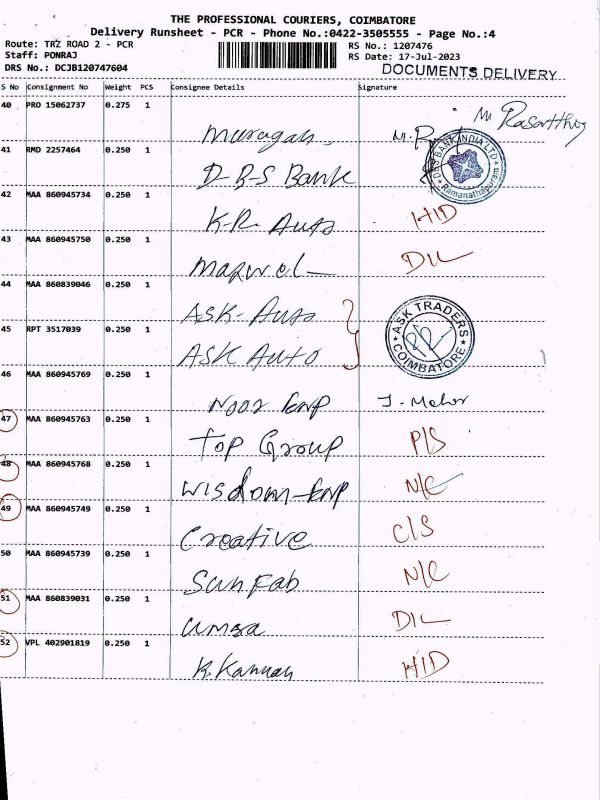 THE PROFESSIONAL COURIERS, COIMBATORE
Delivery Runsheet - PCR - Phone No.:0422-3505555 - Page No.:4
Route: TRZ ROAD 2 - PCR
Staff: PONRAJ
DRS No.: DCJB120747604
RS No.: 1207476
RS Date: 17-Jul-2023
DOCUMENTS DELIVERY
S No Consignment No Weight PCS Consignee Details Signature
40 PRO 15062737 0.275 1
Murugan
41 RMD 2257464 0.250 1
DBS BANK INDIA LTD
Ramanathapuram
D-B-S Bank
42 MAA 860945734 0.250 1
K-R. Auto H/D
43 MAA 860945750 0.250 1
Marvel D/L
44 MAA 860839046 0.250 1
ASK-Auto
45 RPT 3517039 0.250 1
ASK TRADERS
COIMBATORE
ASK Auto
46 MAA 860945769 0.250 1
Noor Enp
47 MAA 860945763 0.250 1
Top Group P/S
48 MAA 860945768 0.250 1
Wisdom-Enp N/C
49 MAA 860945749 0.250 1
Creative C/S
50 MAA 860945739 0.250 1
Sun Fab N/C
51 MAA 860839031 0.250 1
D/L
52 VPL 402901819 0.250 1
K.Kannan H/D